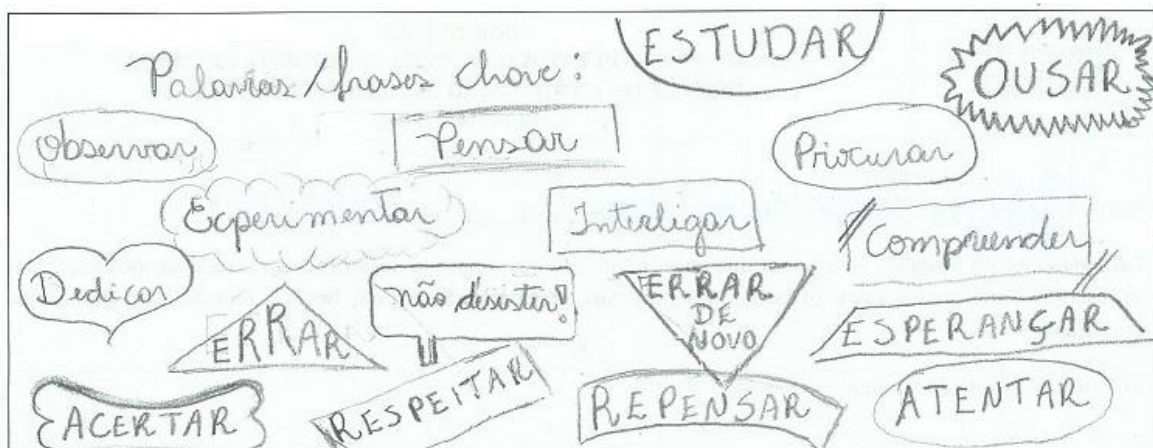 ESTUDAR
Palavras/frases chave:
OUSAR
Observar
Pensar
Procurar
Experimentar
Interligar
Compreender
Dedicar
ERRAR
não desistir!
ERRAR
DE
NOVO
ESPERANÇAR
ACERTAR
RESPEITAR
REPENSAR
ATENTAR